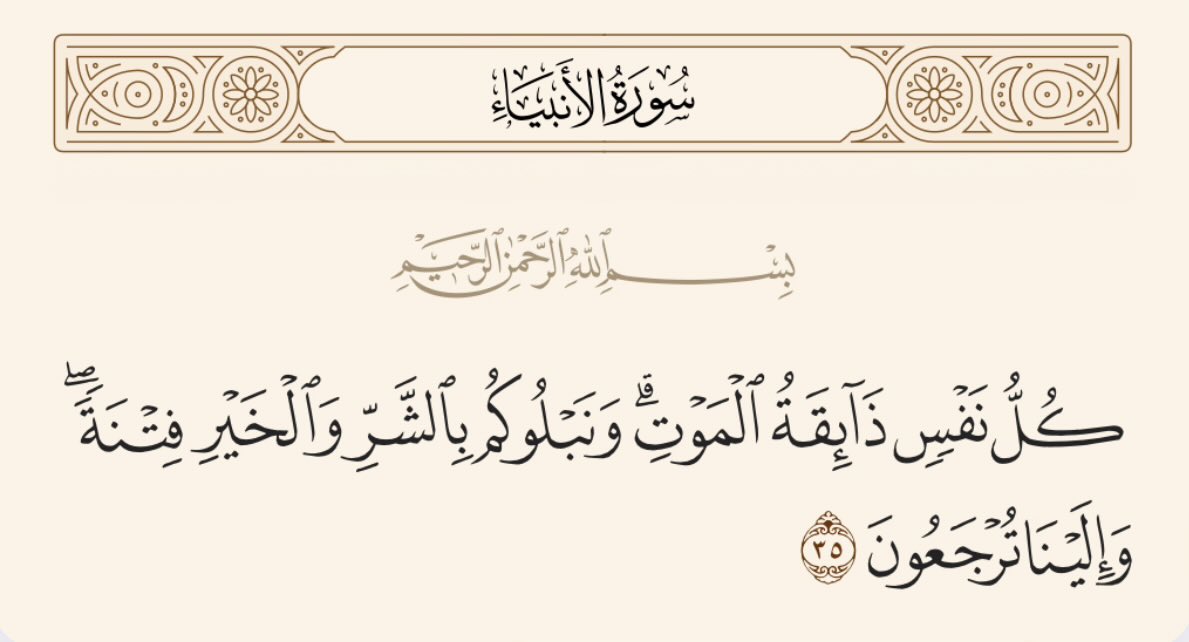 سُورَةُ الأَنبِيَاءِ
بِسْمِ ٱللَّهِ ٱلرَّحْمَٰنِ ٱلرَّحِيمِ
كُلُّ نَفْسٍ ذَآئِقَةُ ٱلْمَوْتِۗ وَنَبْلُوكُم بِٱلشَّرِّ وَٱلْخَيْرِ فِتْنَةًۖ
وَإِلَيْنَا تُرْجَعُونَ ٣٥